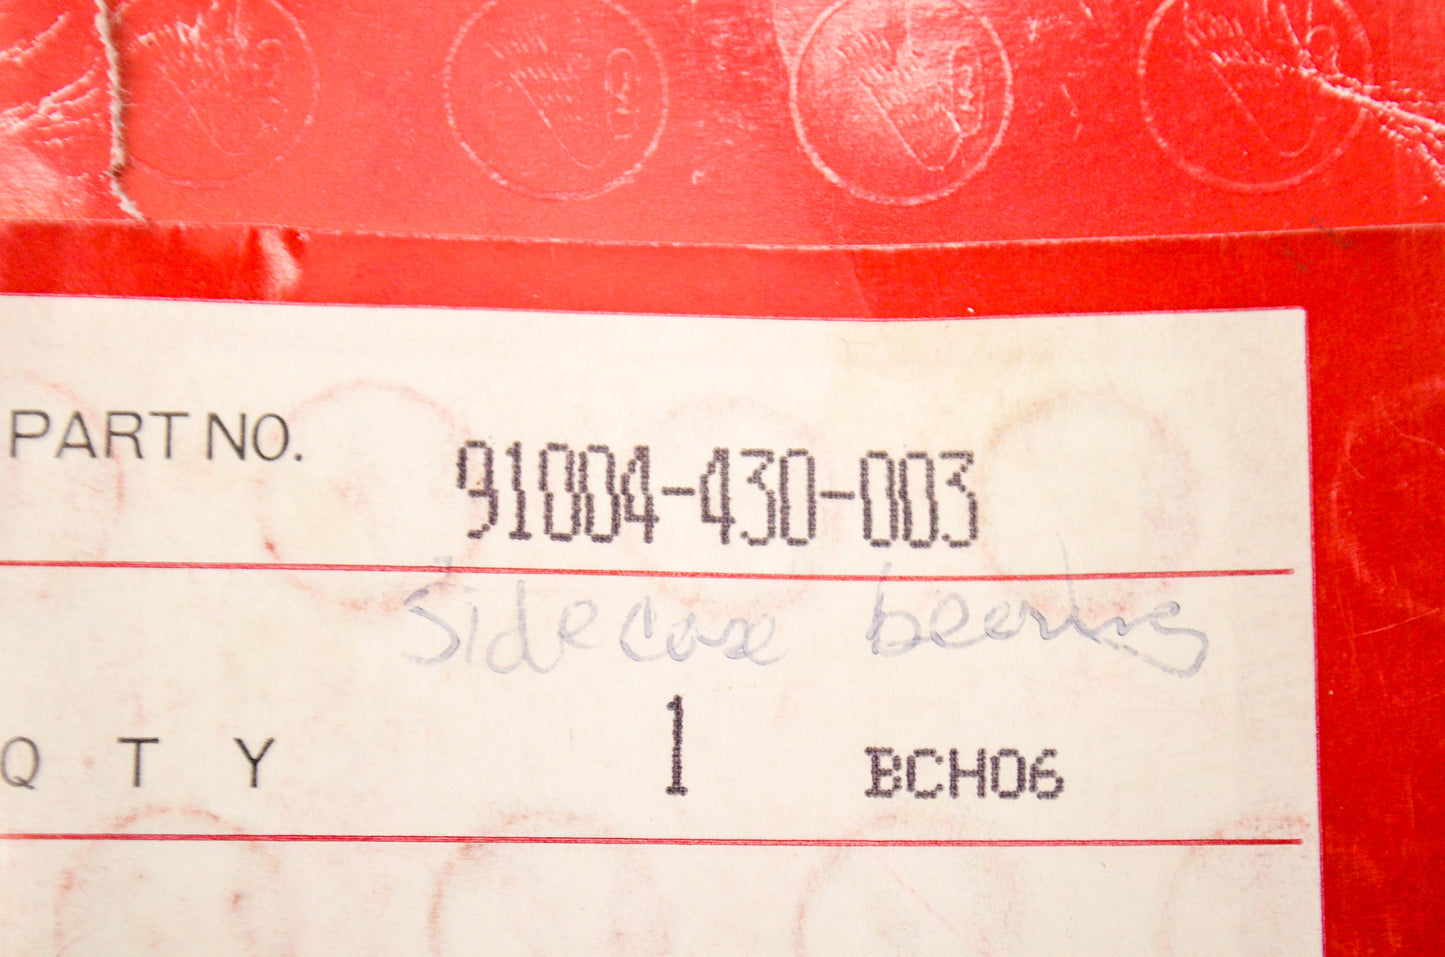 PART NO. 91004-430-003
Sidecase bearing
Q T Y 1 BCH06